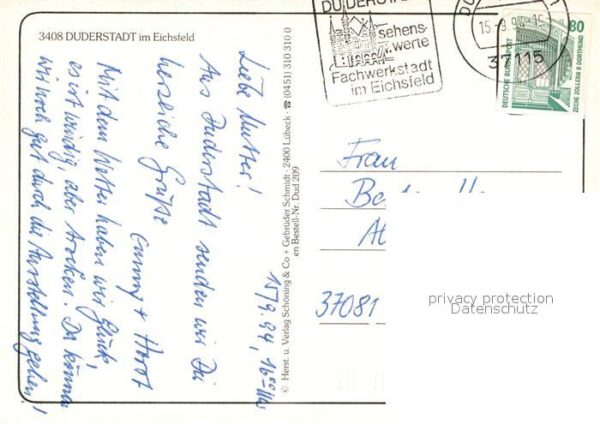 3408 DUDERSTADT im Eichsfeld
Liebe Mutter!
Aus Duderstadt senden wir Dir
herzliche Grüße
Horst
Mit dem Wetter haben wir Glück,
es ist windig, aber trocken. Da können
wir noch gut durch die Ausstellung gehen!
15/9. 94, 16⁰⁰ Uhr
© Herst. u. Verlag Schöning & Co + Gebrüder Schmidt · 2400 Lübeck · ☎ (0451) 310 310 0
en Bestell-Nr. Dud 209
DUDERSTADT
sehens-
werte
Fachwerkstadt
im Eichsfeld
37115
80
DEUTSCHE BUNDESPOST
ZECHE ZOLLERN II DORTMUND
Frau
37081
privacy protection
Datenschutz